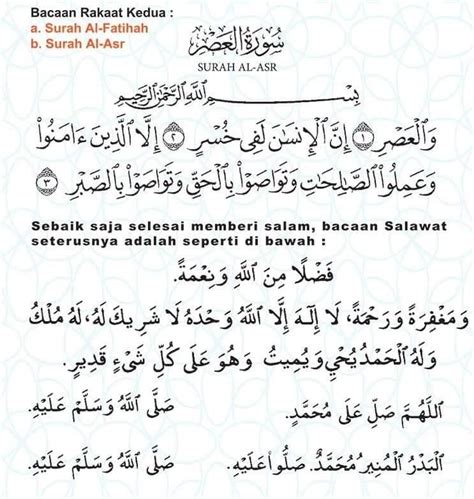 Bacaan Rakaat Kedua :
a. Surah Al-Fatihah
b. Surah Al-Asr
سُورَةُ العَصْرِ
SURAH AL-ASR
بِسْمِ اللَّهِ الرَّحْمَٰنِ الرَّحِيمِ
وَالْعَصْرِ ١ إِنَّ الْإِنسَانَ لَفِي خُسْرٍ ٢ إِلَّا الَّذِينَ ءَامَنُوا
وَعَمِلُوا الصَّالِحَاتِ وَتَوَاصَوْا بِالْحَقِّ وَتَوَاصَوْا بِالصَّبْرِ ٣
Sebaik saja selesai memberi salam, bacaan Salawat
seterusnya adalah seperti di bawah :
فَضْلًا مِنَ اللَّهِ وَنِعْمَةً.
وَمَغْفِرَةً وَرَحْمَةً، لَا إِلَهَ إِلَّا اللَّهُ وَحْدَهُ لَا شَرِيكَ لَهُ، لَهُ مُلْكُ
وَلَهُ الْحَمْدُ يُحْيِي وَيُمِيتُ وَهُوَ عَلَى كُلِّ شَيْءٍ قَدِيرٍ.
اللَّهُمَّ صَلِّ عَلَى مُحَمَّدٍ. صَلَّى اللَّهُ وَسَلَّمَ عَلَيْهِ.
الْبَدْرُ الْمُنِيرُ مُحَمَّدٌ. صَلُّوا عَلَيْهِ. صَلَّى اللَّهُ وَسَلَّمَ عَلَيْهِ.